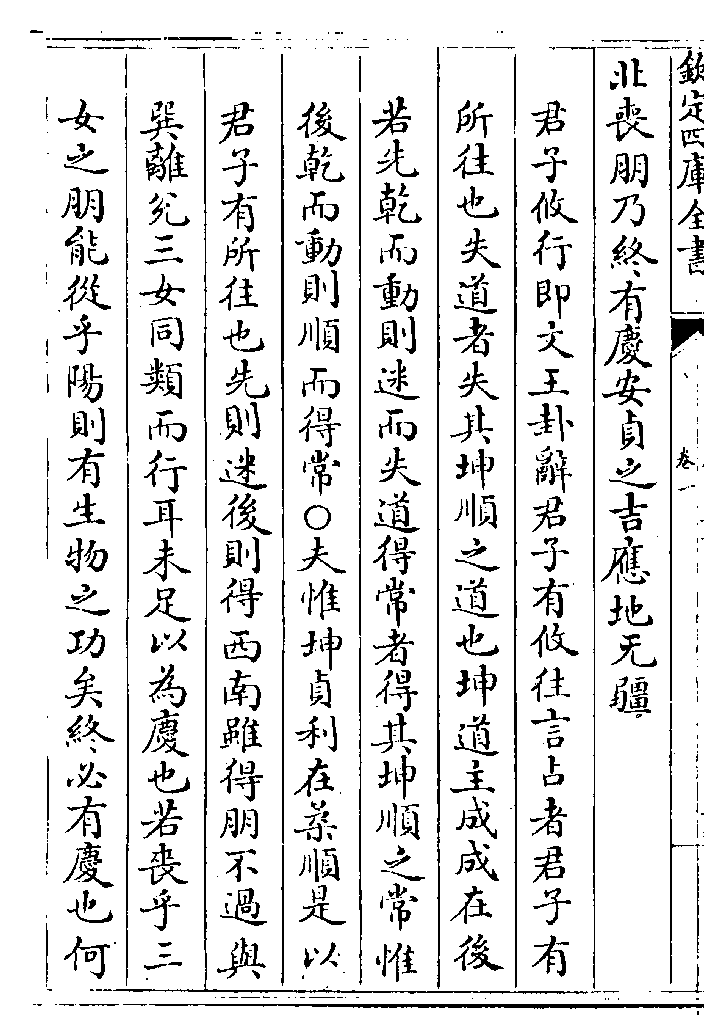 欽定四庫全書
卷一
北喪朋乃終有慶安貞之吉應地无疆
君子攸行即文王卦辭君子有攸往言占者君子有
所往也失道者失其坤順之道也坤道主成成在後
若先乾而動則迷而失道得常者得其坤順之常惟
後乾而動則順而得常○夫惟坤貞利在柔順是以
君子有所往也先則迷後則得西南雖得朋不過與
巽離兊三女同類而行耳未足以為慶也若喪乎三
女之朋能從乎陽則有生物之功矣終必有慶也何